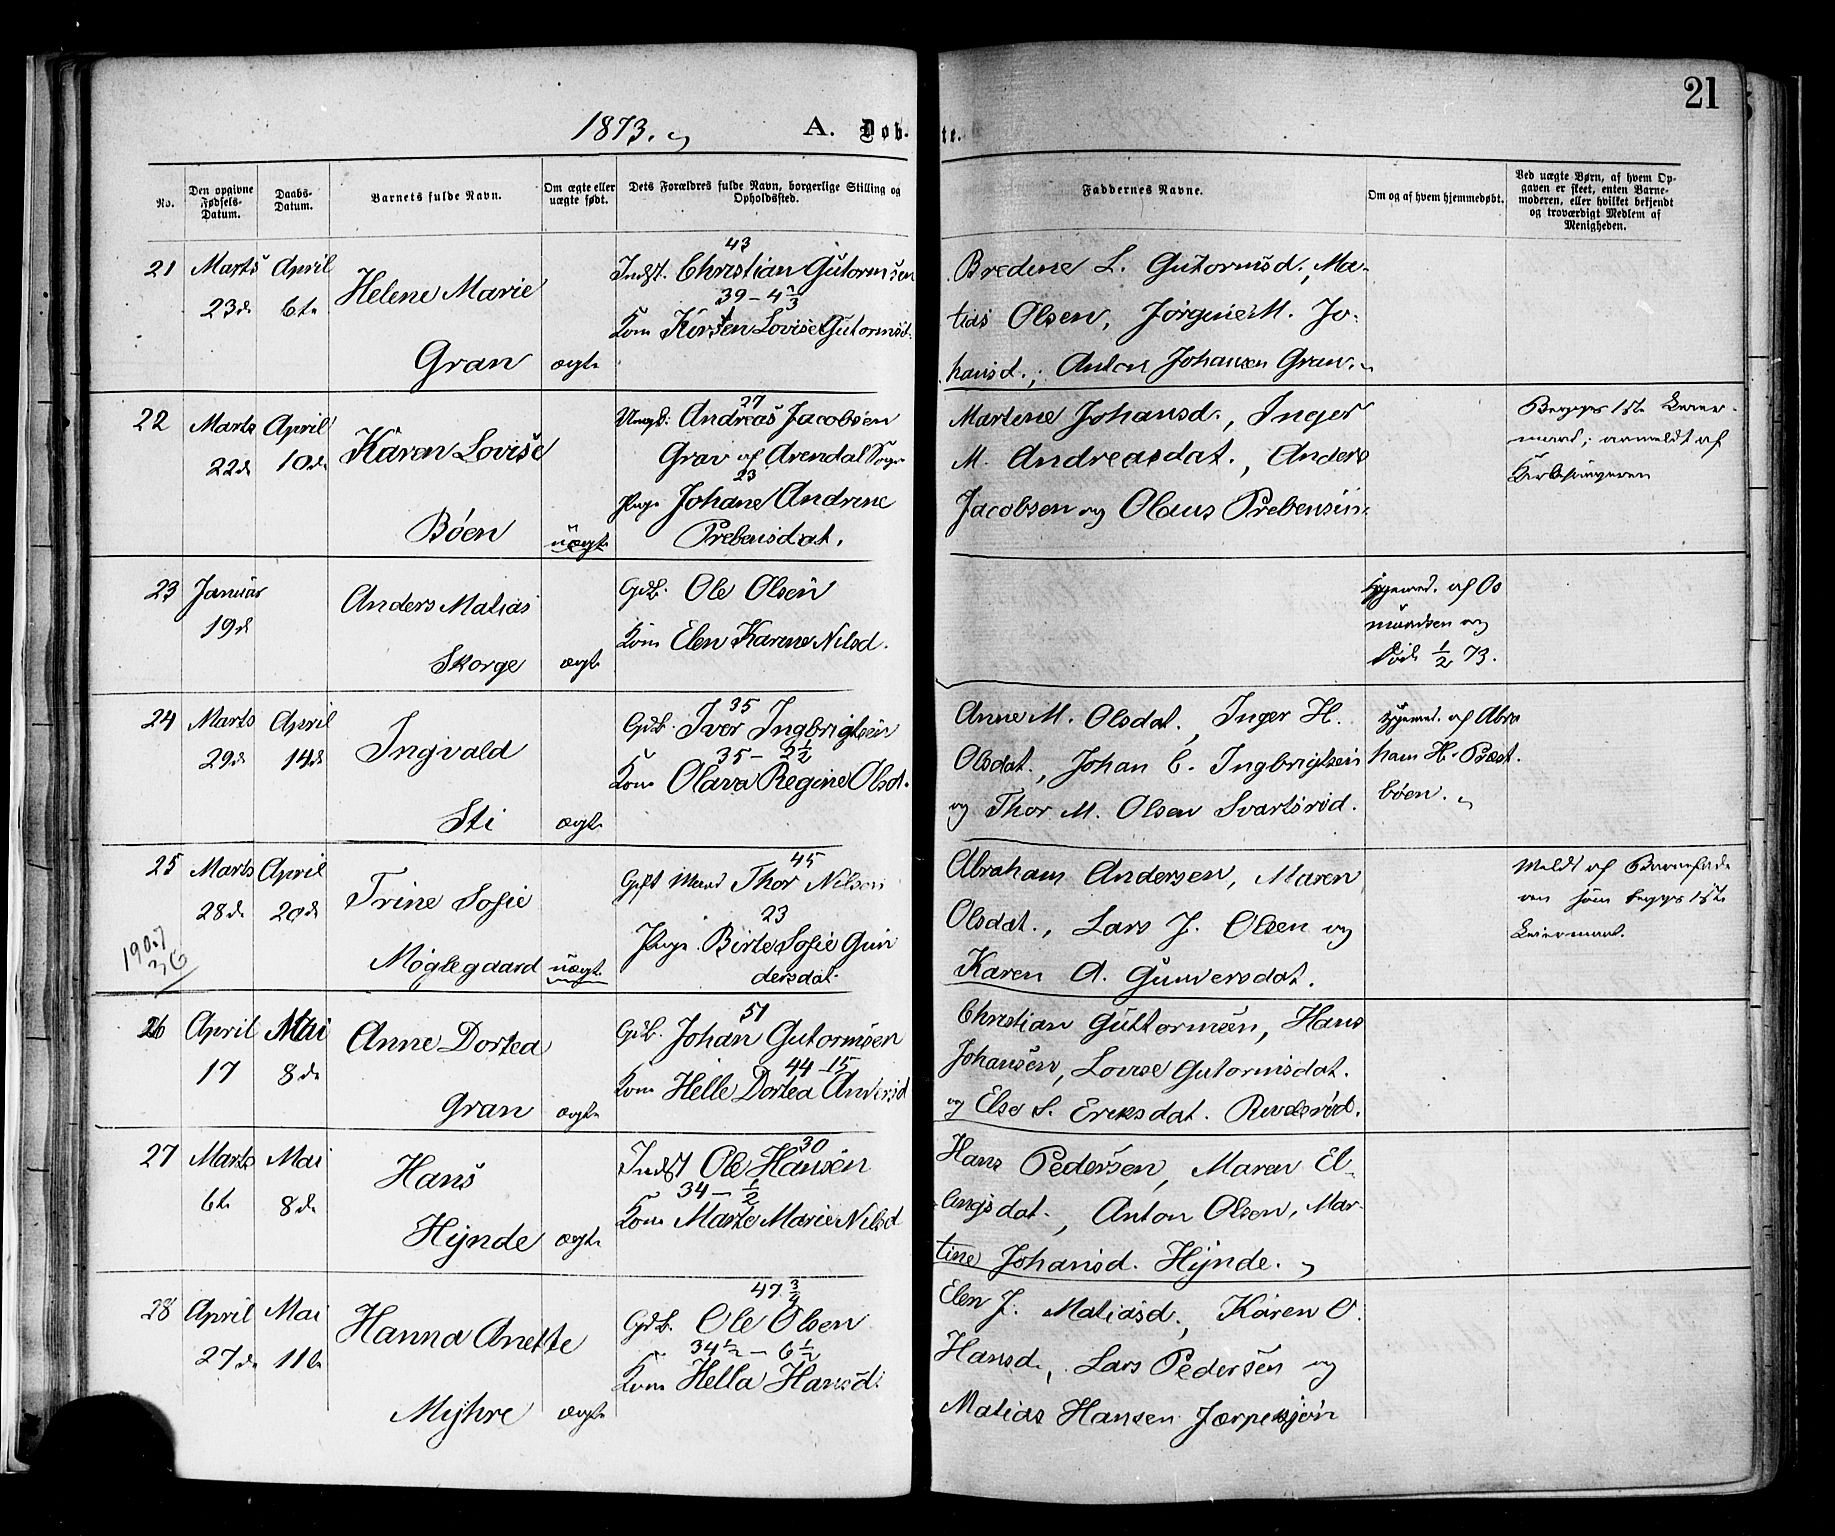 21
1873.
A. Døb-
te.
No.
Den opgivne Fødsels-Datum.
Daabs-Datum.
Barnets fulde Navn.
Om ægte eller uægte født.
Dets Forældres fulde Navn, borgerlige Stilling og Opholdssted.
Faddernes Navne.
Om og af hvem hjemmedøbt.
Ved uægte Børn, af hvem Op-
gaven er skeet, enten Barne-
moderen, eller hvilket bekjendt
og troværdigt Medlem af
Menigheden.
21 Marts 23de April 6te
Helene Marie
Gran
ægte
43
Indst. Christian Gutormsen
39 - 4
Kone Kirsten Lovise Gutormsd.
Bredine L. Gutormsd., Ma-
tias Olsen, Jørgine M. Jo-
hansd., Anton Johansen Gran.
22 Marts 22de April 10de
Karen Lovise
Bøen
uægte
27
Ungk. Andreas Jacobsen
Grav af Arendal Sogn
23
Pige Johane Andrine
Prebensdat.
Martine Johansd., Inger
M. Andreasdat., Anders
Jacobsen og Olaus Prebensen.
Begges 1ste Leier-
maal; anmeldt af
Kirkesangeren
23 Januar 19de
Anders Matias
Skorge
ægte
Gdb. Ole Olsen
Kone Elen Karene Nilsd.
hjemmed. af Os
mundsen og
død 1/2 73.
24 Marts 29de April 14de
Ingvald
Sti
ægte
35
Gdb. Iver Ingbrigtsen
35 - 2 1/2
Kone Olava Regine Olsd.
Anne M. Olsdat., Inger H.
Olsdat., Johan C. Ingbrigtsen
og Thor M. Olsen Svartsrød.
hjemmed. af Abra
ham H. Præst-
bøen.
25 Marts 28de April 20de
Trine Sofie
Møglegaard
uægte
45
Gift Mand Thor Nilsen
23
Pige Birte Sofie Gun
dersdat.
Abraham Andersen, Maren
Olsdat., Lars J. Olsen og
Karen A. Gunversdat.
Meldt af Barnefade
ren som begges 1ste
Leiermaal.
1907
26 April 17 Mai 8de
Anne Dortea
Gran
ægte
51
Gdb. Johan Gutormsen
44 - 15
Kone Helle Dortea Andersd
Christian Guttormsen, Hans
Johansen, Lovise Gutormsdat.
og Else S. Eriksdat.
27 Marts 6te Mai 8de
Hans
Hijnde
ægte
30
Indst Ole Hansen
34 - 1/2
Kone Marte Marie Nilsd
Hans Pedersen, Maren El-
lingsdat., Anton Olsen, Mar-
tine Johansd. Hijnde.
28 April 27de Mai 11te
Hanna Anette
Mijhre
ægte
47 3/4
Gdb. Ole Olsen
34 1/2 - 6 1/2
Kone Hella Hansd.
Elen J. Matiasd., Karen O.
Hansd., Lars Pedersen og
Matias Hansen Jærpekjøn